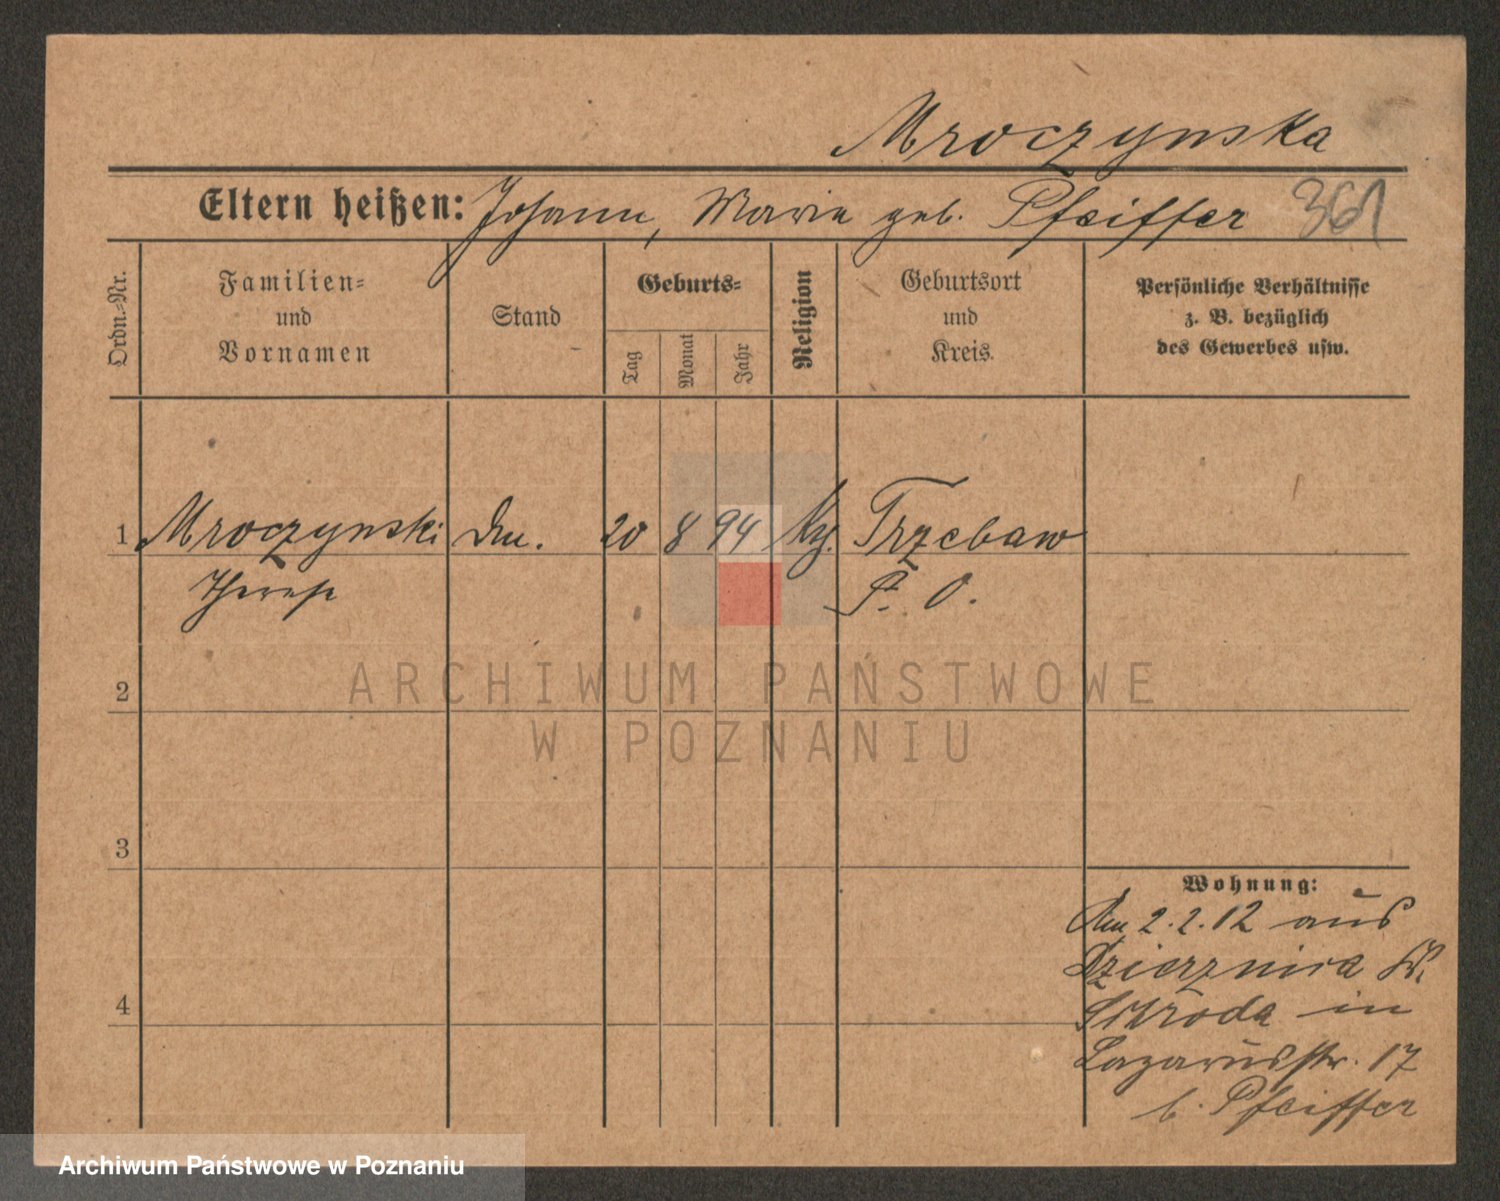 Mroczynska
Eltern heißen: Johann, Marie geb. Pfeiffer 361
Ordn.-Nr.
Familien-
und
Vornamen
Stand
Geburts-
Tag
Monat
Jahr
Religion
Geburtsort
und
Kreis.
Persönliche Verhältnisse
z. B. bezüglich
des Gewerbes usw.
1 Mroczynski 20 8 94 Trzebaw
Therese P. O.
2
ARCHIWUM PAŃSTWOWE
W POZNANIU
3
Wohnung:
Am 2.2.12 aus
Dzierznica Kr.
Schroda in
4
Lazarusstr. 17
b. Pfeiffer
Archiwum Państwowe w Poznaniu